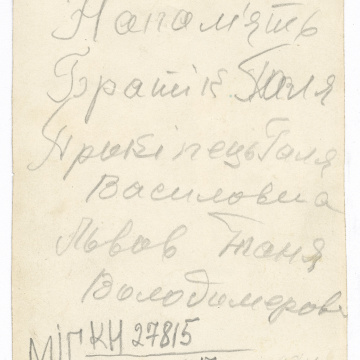 На пам'ять
Братік Галя
Ярокіпець Галя
Василовна
Львов Таня
Володимеровн
МІГ КН 27815